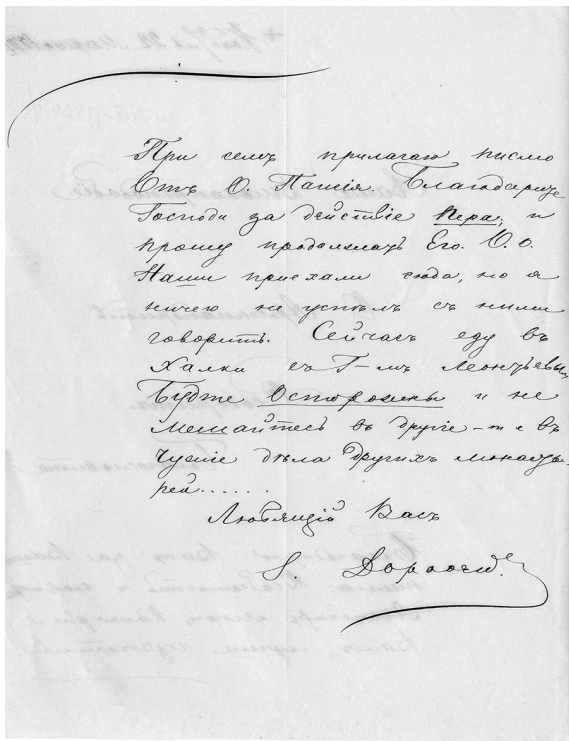 При семъ прилагаю письмо
Отъ О. Паисія. Благодарите
Господа за действіе Пера; и
прошу продолжать Его. О. о.
Наши приехали сюда, но я
ничего не успелъ съ ними
говорить. Сейчасъ еду въ
Халки съ Г-мъ Леонтьевы
Будте Осторожны и не
мешайтесь въ другіе - т е въ
чужіе дѣла другихъ монасты
рей......
Любящій Васъ